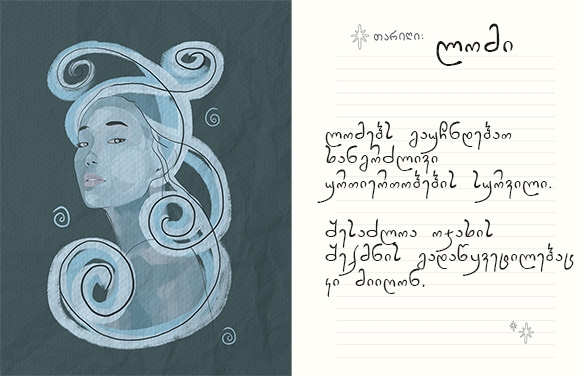 თარიღი: ლომი
ლომებს გაუჩნდებათ
ხანგრძლივი
ურთიერთობების სურვილი.
შესაძლოა ოჯახის
შექმნის გადაწყვეტილებაც
კი მიიღონ.